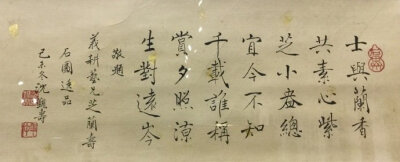 士與蘭香
共素心紫
芝小卷總
宜今不知
千載誰稱
賞夕照涼
生對遠岑
敬題
義耕藝兄芝蘭壽
石圖逸品
己未冬沈
壽